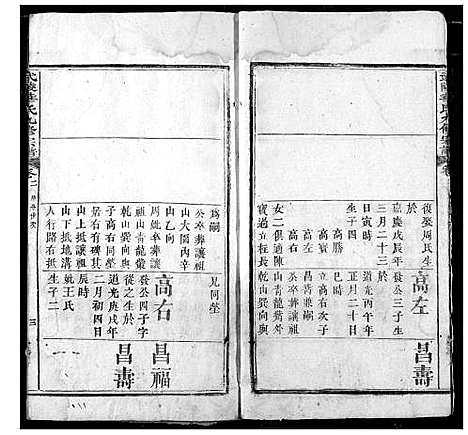 復娶周氏生
於
嘉慶戊辰年
三月二十三
日寅時
生子四
高勝
高賓
高左
高右
女二俱適陳
高左
發公三子生
於
道光丙午年
正月二十日
巳時
立高右次子
昌壽兼嗣
公卒葬讓祖
山青龍嘴外
乾山巽向與
昌壽
為嗣
公卒葬讓祖
山大園內辛
山乙向
周妣卒葬讓
祖山青龍嘴
乾山巽向與
子高右同塋
居右有碑其
山上抵讓祖
山下抵地溝
人行路右抵
兄同塋
高右
發公四子字
從之生於
道光庚戌年
二月初四日
辰時
娶王氏
生子二
昌福
昌壽
三